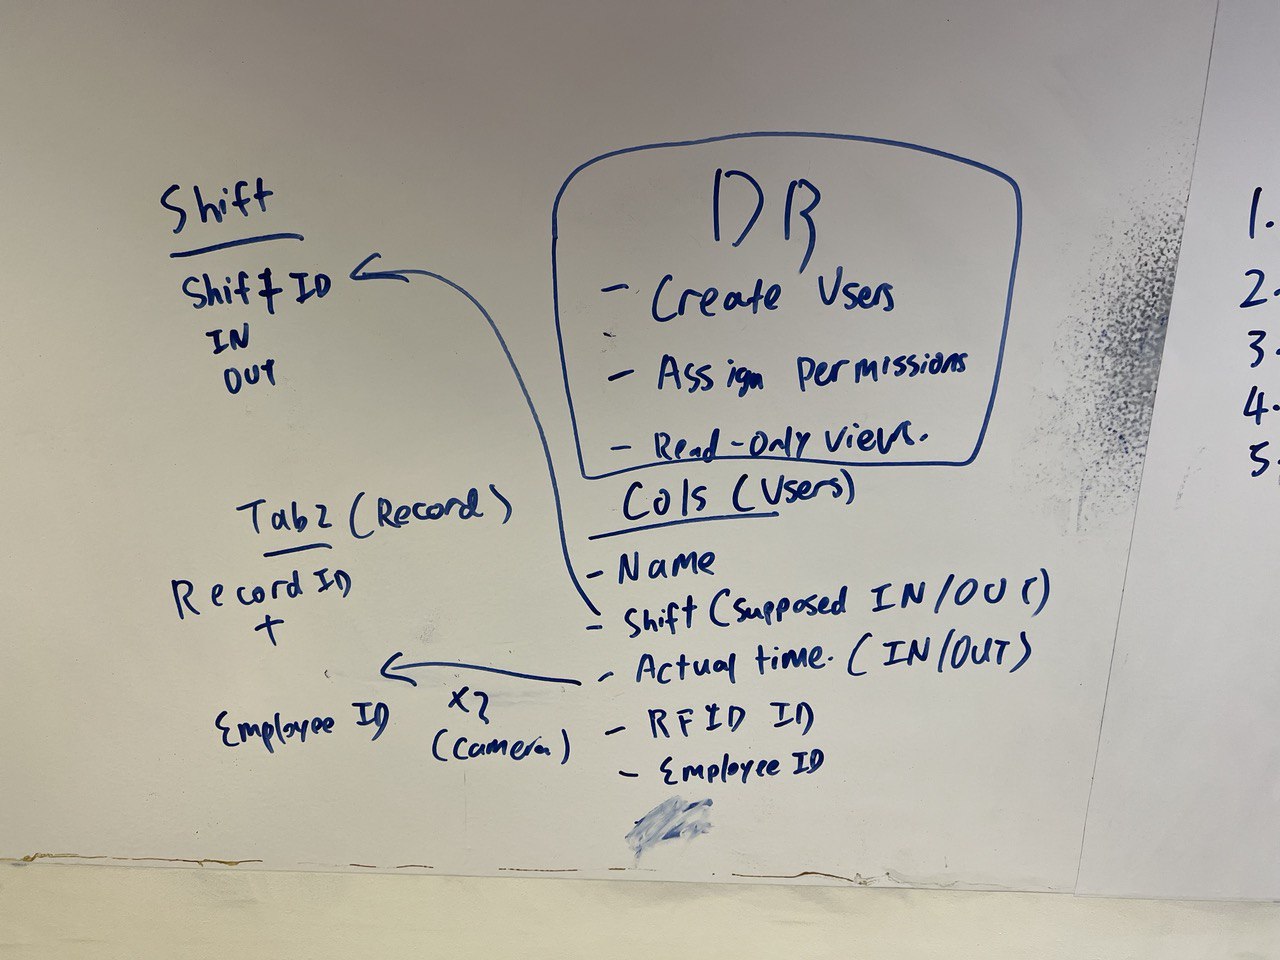 Shift
Shift ID
IN
OUT
Tab2 (Record)
Record ID
+
Employee ID
(Camera)
DB
- Create Users
- Assign Permissions
- Read-Only views.
Cols (Users)
- Name
- Shift (supposed IN/OUT)
- Actual time. (IN/OUT)
- RFID ID
- Employee ID
1.
2.
3.
4.
5.